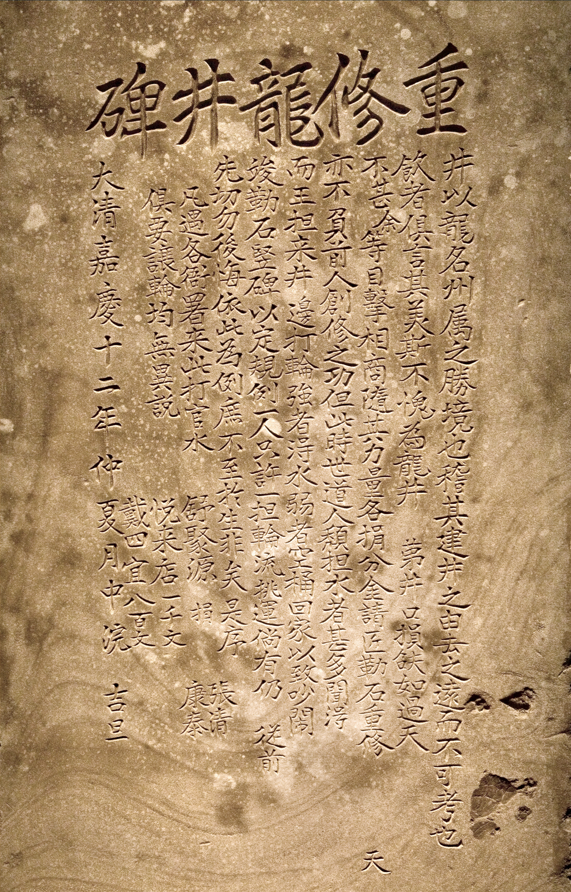 重修龍井碑
井以龍名州属之勝境也稽其建井之由去之遠而不可考也
飲者俱言其美斯不愧為龍井 苐井口損缺如過天
不甚 等目擊相商隨其力量各捐分金請匠勒石重修 天
亦不負前人創修之功但此時世道人稠担水者甚多聞得
而王担来井邊打輪強者得水弱者空桶回家以致吵鬧
竣勒石堅碑以定規例一人只許一担輪流挑運倘有仍 從前
先切勿後海依此為例庶不至於生非矣 是序
凡過各衙署来此打官水 舒聚源 捐 張清 康泰
俱要讓輪均無異說 悅来店一千文
戴四宜八百文
大清嘉慶十二年仲夏月中浣 吉旦